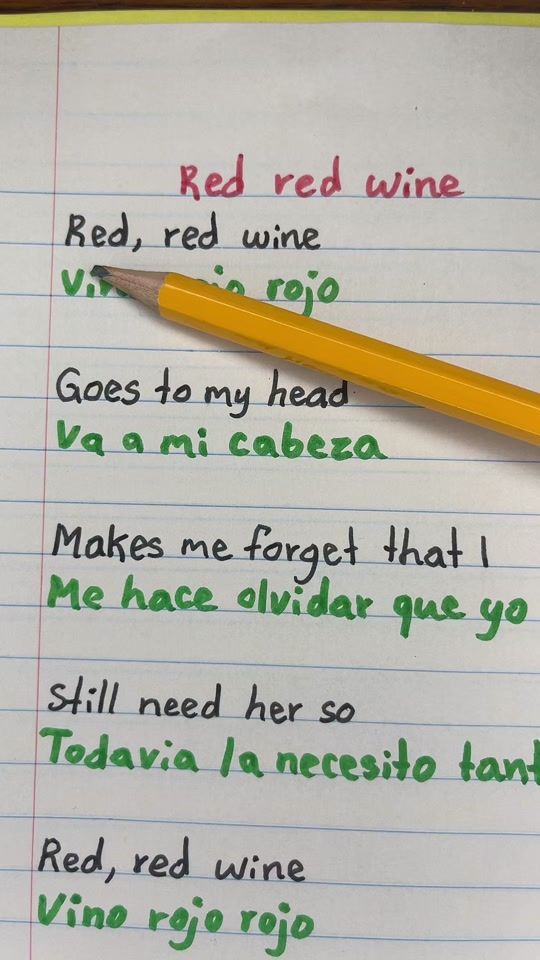 Red red wine
Red, red wine
rojo
Goes to my head
Va a mi cabeza
Makes me forget that I
Me hace olvidar que yo
Still need her so
Todavia la necesito tant
Red, red wine
Vino rojo rojo